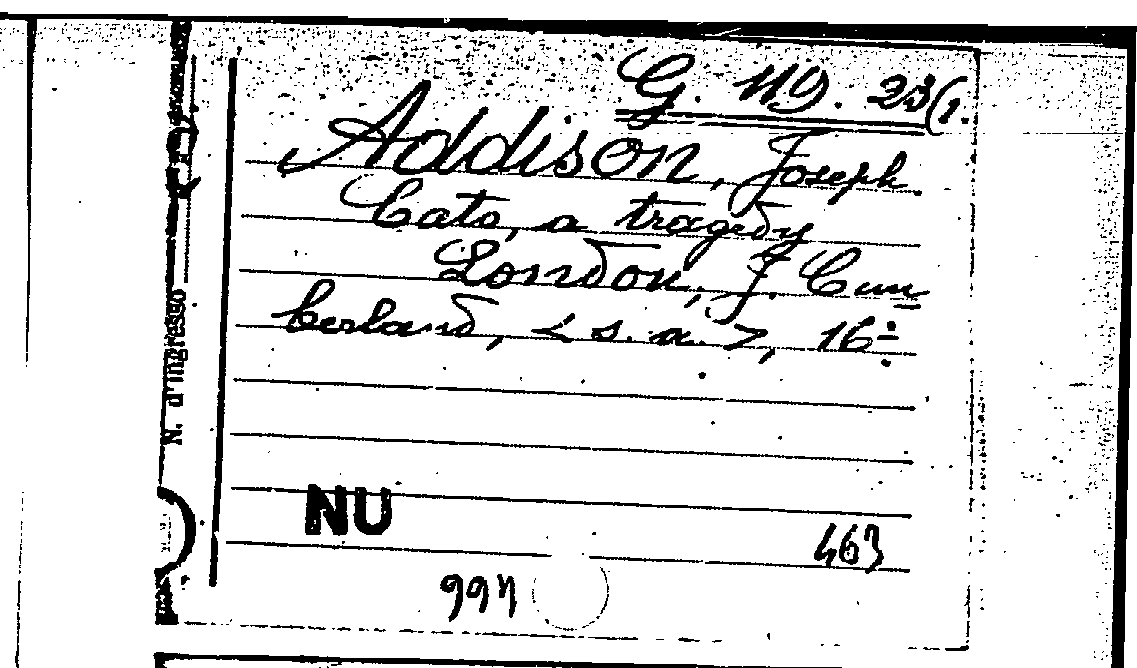 G. 119. 23(1.
Addison, Joseph.
Cato, a tragedy
London, J. Cum
berland, < s. a. >, 16º
NU
463
994
N. d'ingresso